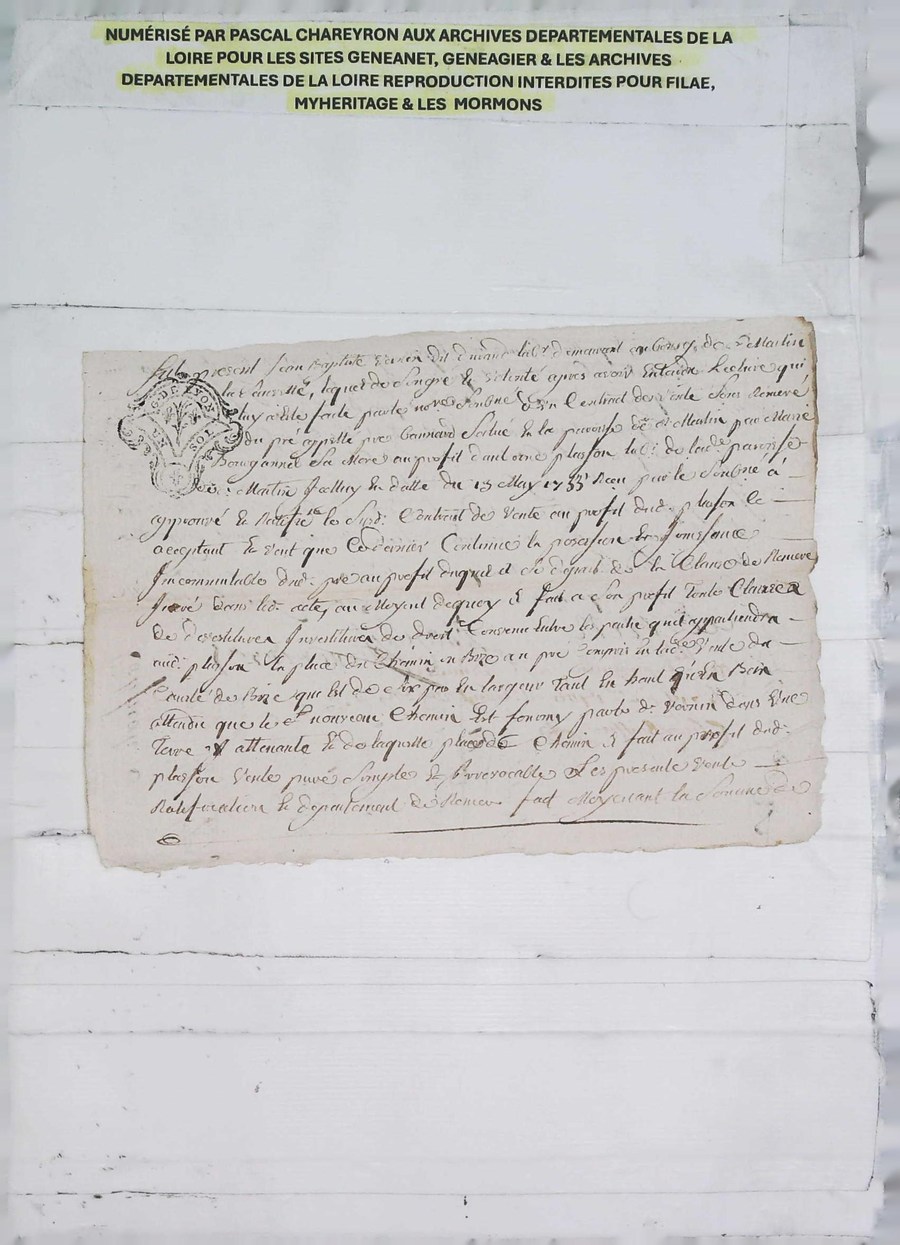 NUMÉRISÉ PAR PASCAL CHAREYRON AUX ARCHIVES DEPARTEMENTALES DE LA
LOIRE POUR LES SITES GENEANET, GENEAGIER & LES ARCHIVES
DEPARTEMENTALES DE LA LOIRE REPRODUCTION INTERDITES POUR FILAE,
MYHERITAGE & LES MORMONS
present Jean Baptiste dit demeurant au bourg de St Martin
lequel de Son gré et volonté après avoir Entendu Lecture qui
luy a été faite par le no.re Soubné d'un Contract de vente Sous Remeré
G. DE LYON
UN SOL
du pré appellé pré Scitué En la paroisse de St Martin par Marie
Sa Mere au profit d'antoine plasson lab.r de lad. paroisse
de St. Martin En datte du 15 May 1755 Receu par le Soubné à
approuvé et Ratifié le Susd. Contract de vente au profit dud. plasson
acceptant et veut que Ce dernier Continue la possession et Jouissance
Jncommutable dud. pré au profit duquel il Se départ de la Clause de Remeré
dans led. acte, au Moyent de quoy il fait a Son profit toute Clauze
de devestiture Jnvestiture de droit Convenu Entre les partie qu'il appartiendra
aud. plasson la place du Chemin au pré Compris en lad. vente du
Coulé de Bize qui Est de Six En largeur tant En haut qu'En Bas
attendu que le nouveau Chemin Est par le d. dans Une
Terre attenante et de laquelle place de Chemin il fait au profit dud.
plasson vente pure Simple et Jrrevocable Les presente vente
Ratification et departement de Remeré fait Moyenant la Somme de